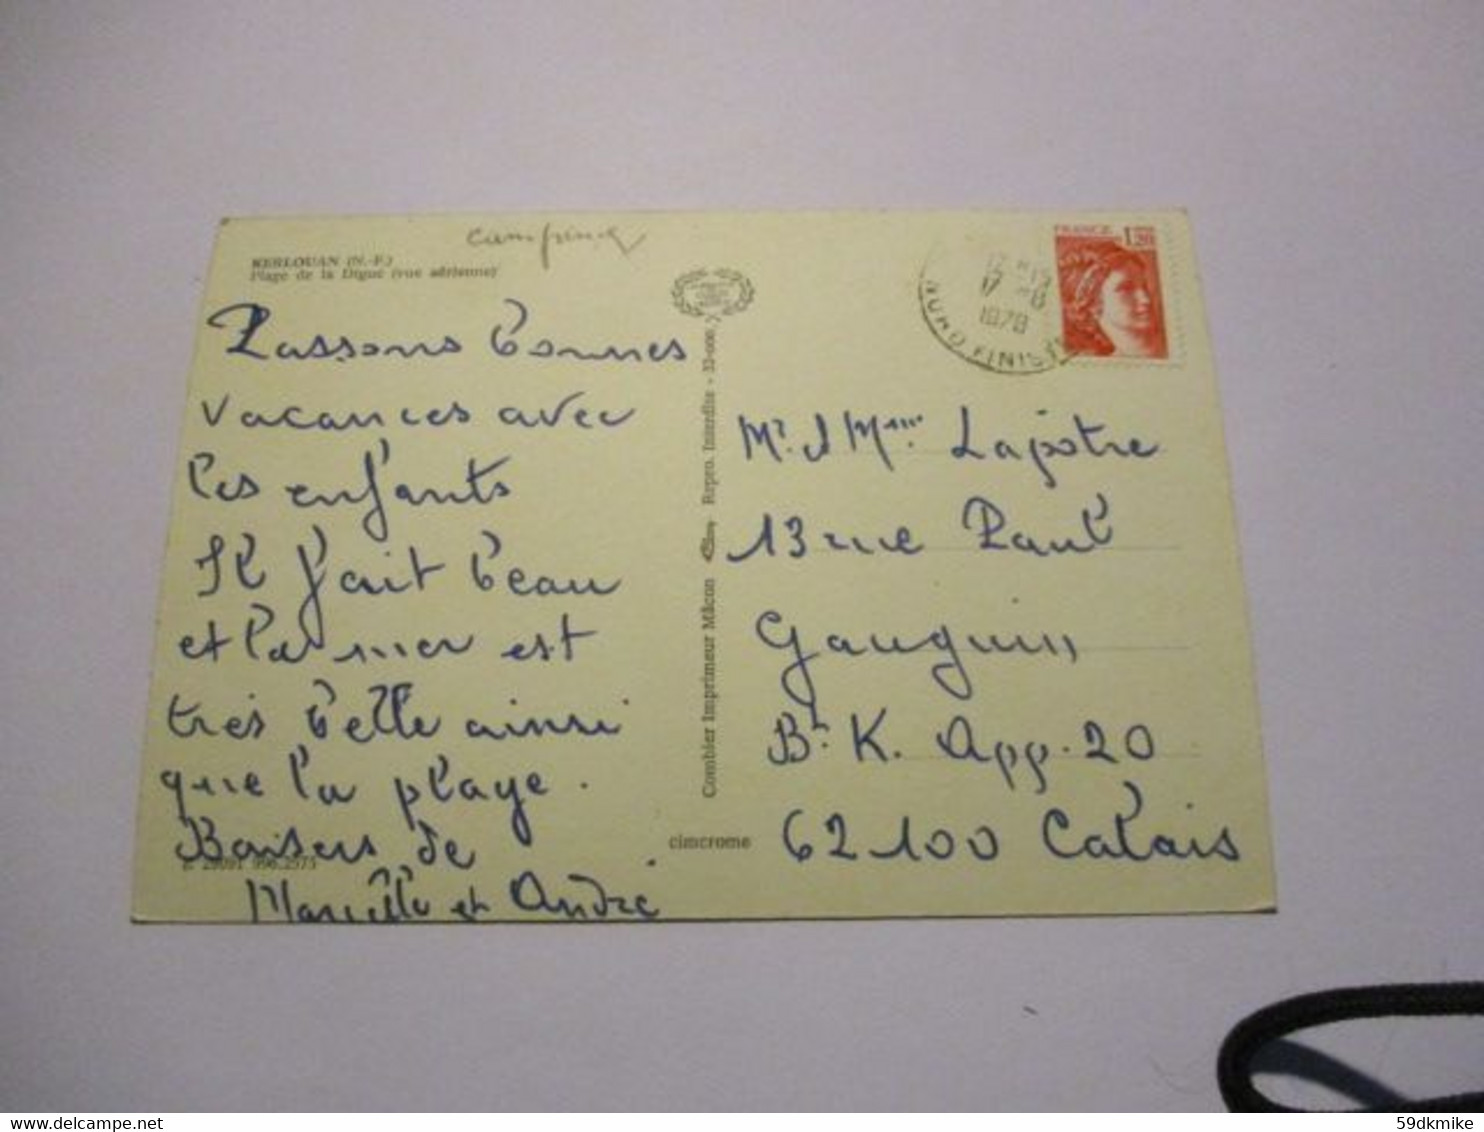 KERLOUAN (N.-F.)
Plage de la Digue (vue aérienne)
Passons bonnes
vacances avec
les enfants
Il fait beau
et la mer est
très belle ainsi
que la plage.
Baisers de
Marcelle et André
E. 29091 996.2573
Combier Imprimeur Mâcon Repro. Interdite
cimcrome
FRANCE 1,20
17 H15
17 -8
1978
FINIST
Mr. & Mme Lapôtre
13 rue Paul
Gauguin
Bt. K. App. 20
62100 Calais
59dkmike